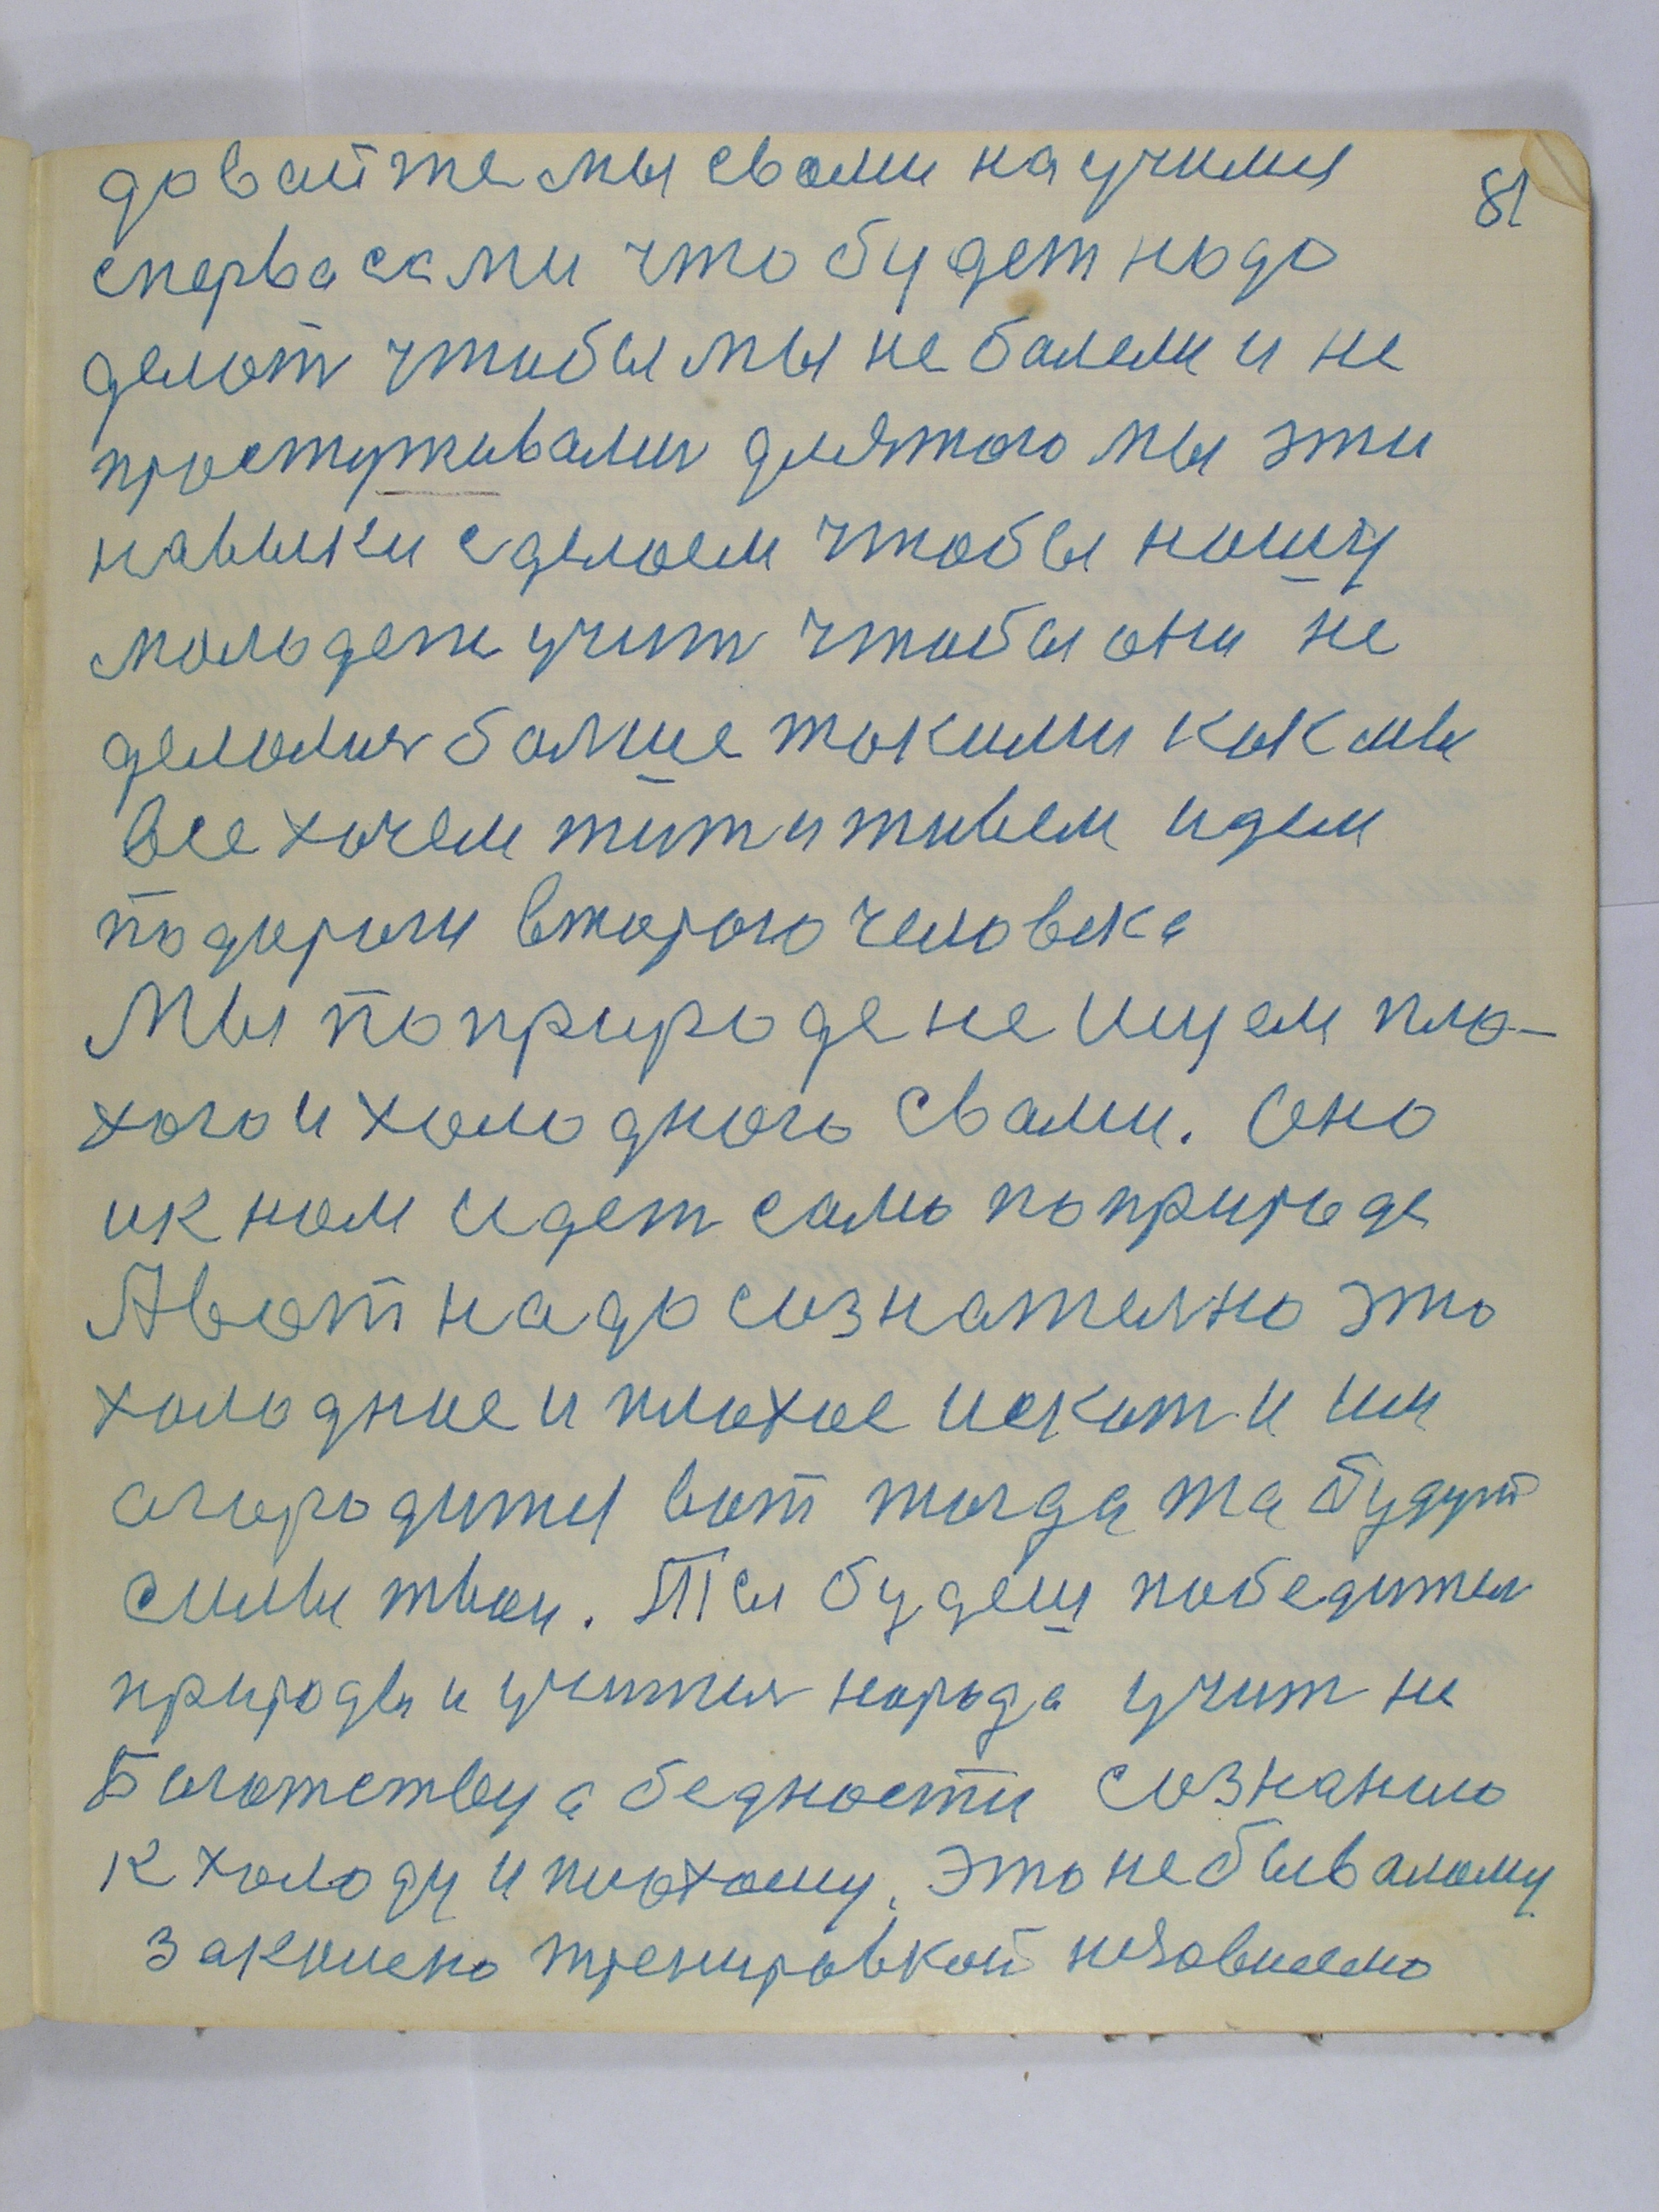 81
давайте мы свами научимя
сперва сами что будет надо
делат чтобы мы не болели и не
простуживалис длятого мы эти
навыки сделаем чтобы нашу
молодеж учит чтобы они не
делалис болше такими как мы
все хочем жит и живем идем
подороги второго человека
Мы поприроде не ищем пло-
хого и холодного свами. Оно
ик нам идет само поприроде
Авот надо сознателно это
холодное и плохое искат и им
огородится вот тогда та будут
силы твои. Ты будеш победител
природы и учител народа учит не
Богатству а бедности сознанию
к холоду и плохому. Это небывалому
закалено тренировкой независемо